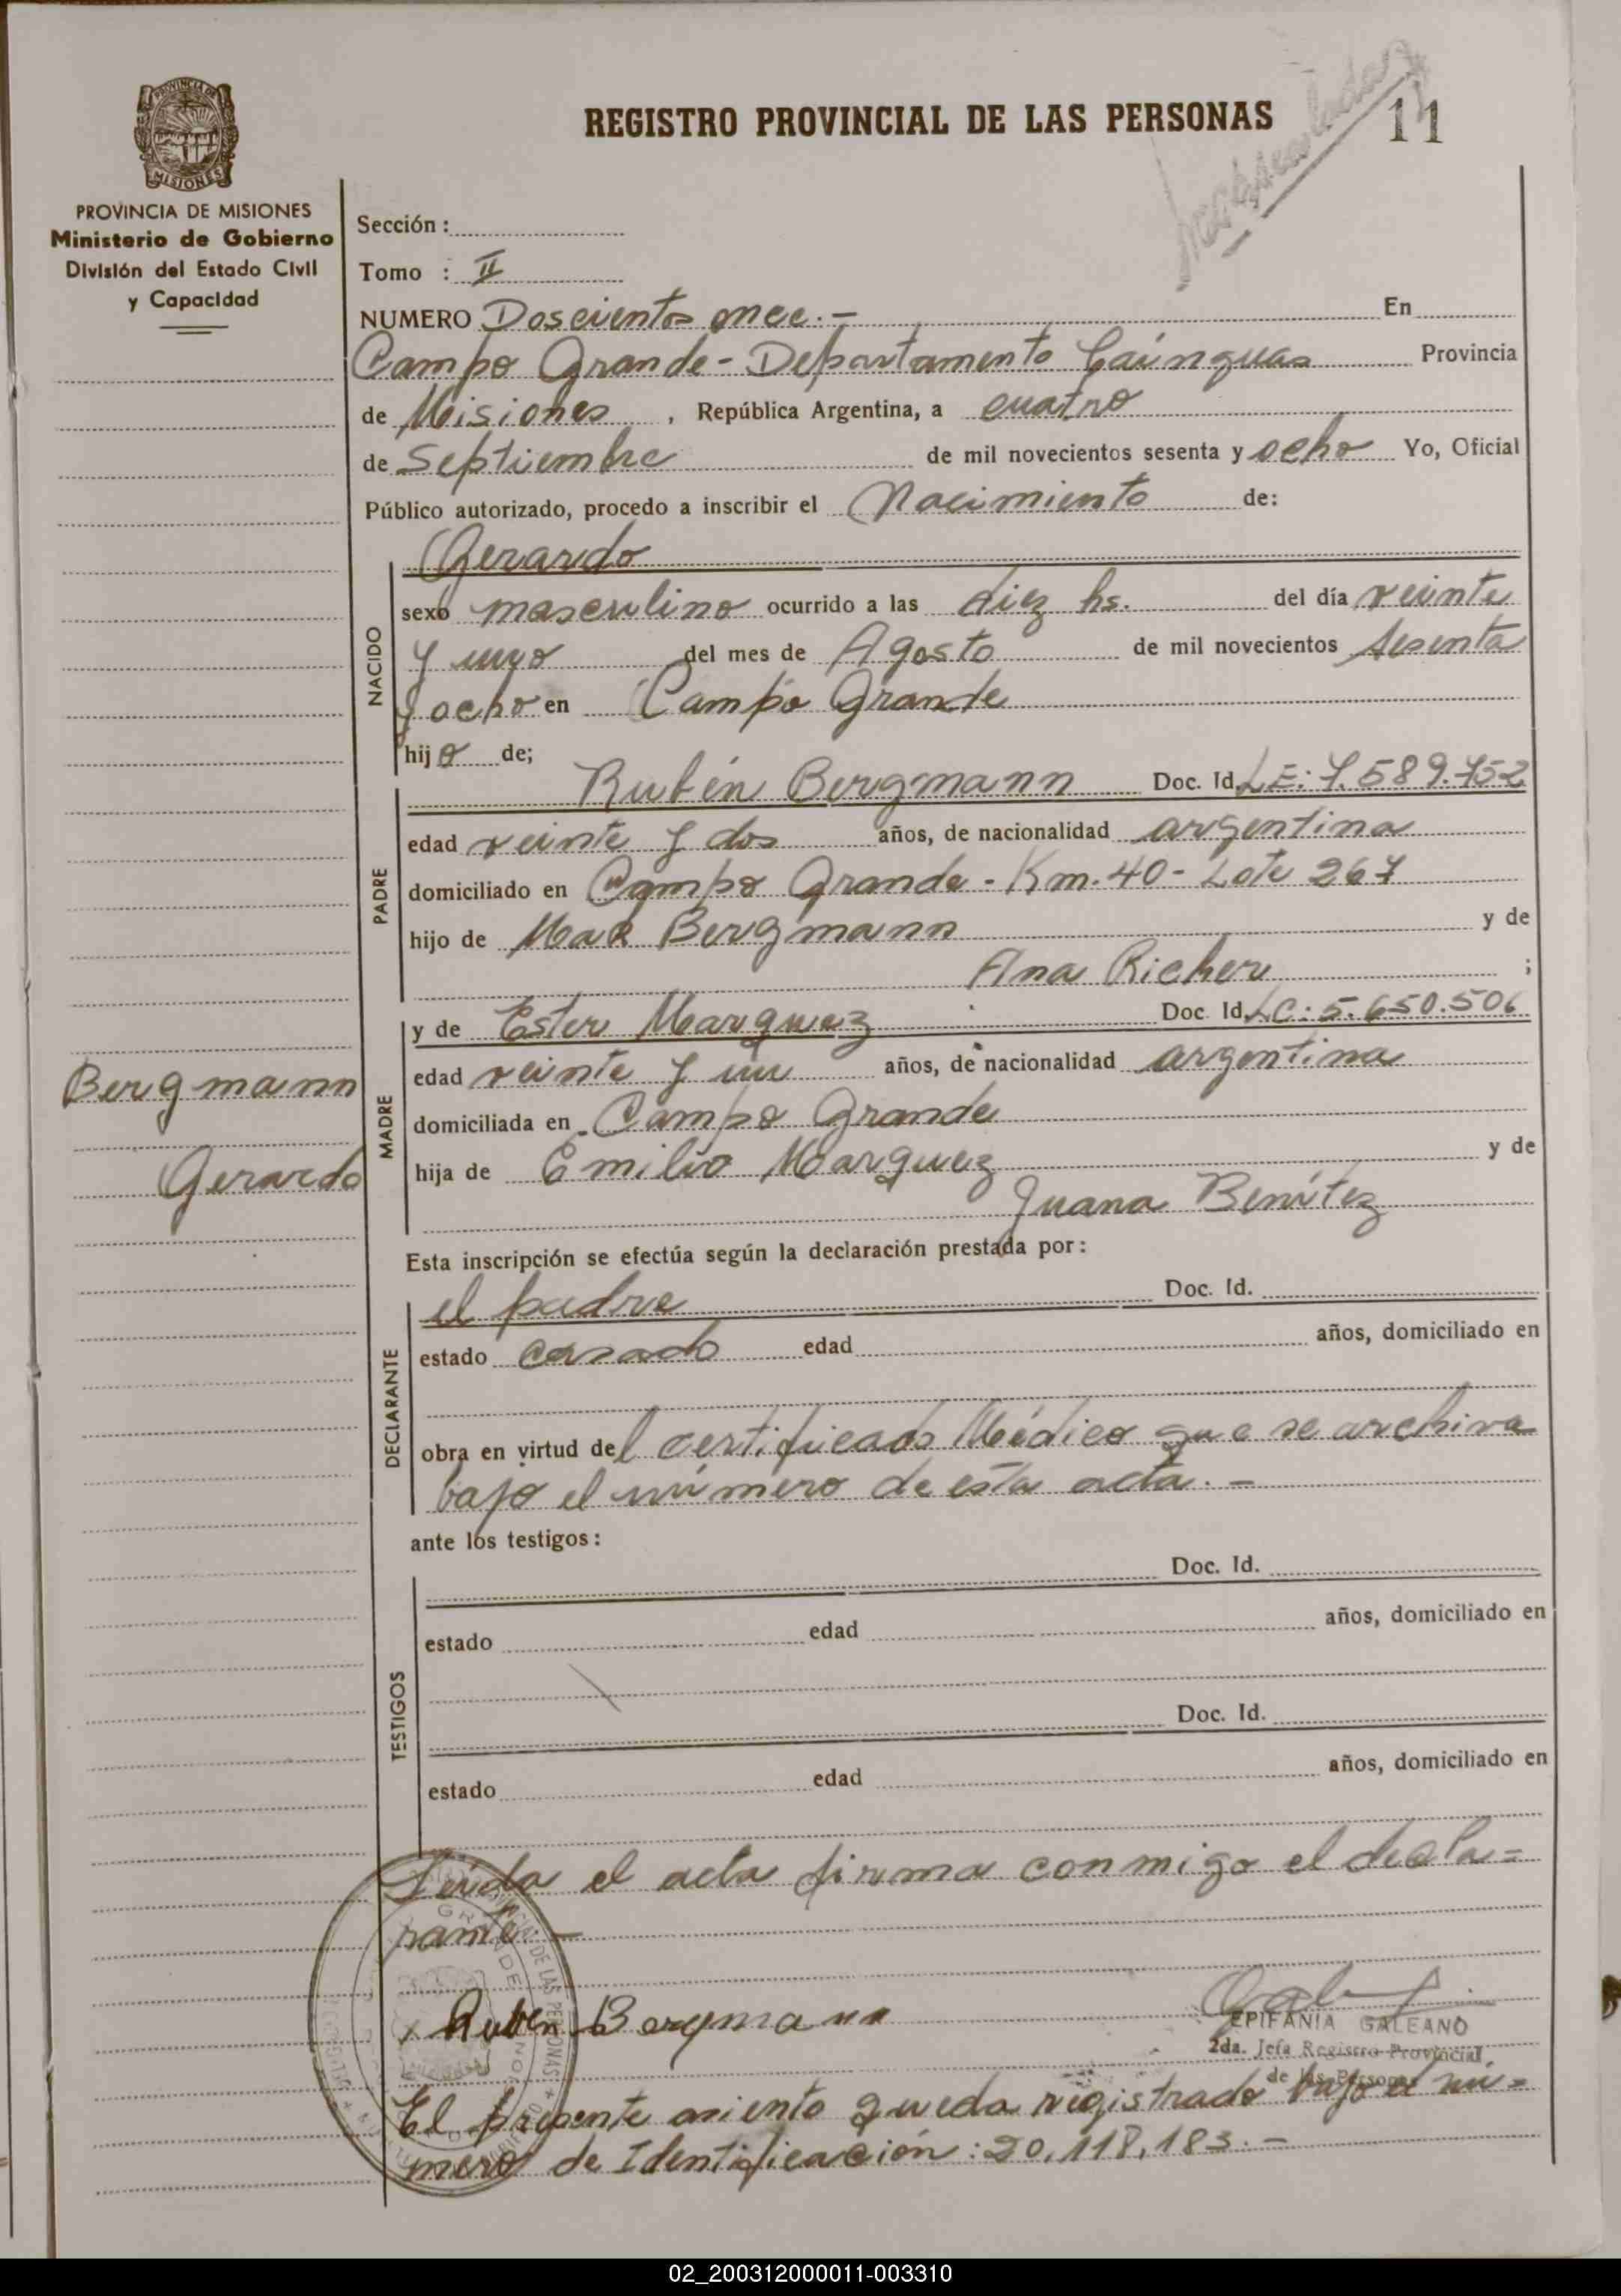 REGISTRO PROVINCIAL DE LAS PERSONAS
11
PROVINCIA DE MISIONES
Ministerio de Gobierno
División del Estado Civil
y Capacidad
Sección :
Tomo : II
NUMERO Doscientos once.- En
Campo Grande - Departamento Cainguas Provincia
de Misiones , República Argentina, a cuatro
de Septiembre de mil novecientos sesenta y ocho Yo, Oficial
Público autorizado, procedo a inscribir el Nacimiento de:
Gerardo
NACIDO
sexo masculino ocurrido a las diez hs. del día veinte
y uno del mes de Agosto de mil novecientos sesenta
y ocho en Campo Grande
hijo de;
PADRE
Rubén Bergmann Doc. Id. LE: 7.589.752
edad veinte y dos años, de nacionalidad argentina
domiciliado en Campo Grande - Km. 40 - Lote 267
hijo de Max Bergmann y de
Ana Richer ;
MADRE
y de Ester Marquez Doc. Id. LC: 5.650.506
edad veinte y un años, de nacionalidad argentina
domiciliada en Campo Grande
hija de Emilio Marquez y de
Juana Benítez
Bergmann
Gerardo
Esta inscripción se efectúa según la declaración prestada por:
DECLARANTE
el padre Doc. Id.
estado casado edad años, domiciliado en
obra en virtud del certificado Médico que se archiva
bajo el número de esta acta.-
ante los testigos:
TESTIGOS
Doc. Id.
estado edad años, domiciliado en
Doc. Id.
estado edad años, domiciliado en
Leída el acta firma conmigo el decla=
rante.-
Ruben Bergmann
EPIFANIA GALEANO
2da. Jefa Registro Provincial
de las Personas
El presente asiento queda registrado bajo el nú=
mero de Identificación: 20.118.183.-
02_200312000011-003310